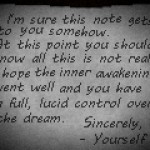 I'm sure this note gets
to you somehow.
At this point you should
know all this is not real.
hope the inner awakening
went well and you have
full, lucid control over
the dream.
Sincerely,
- Yourself